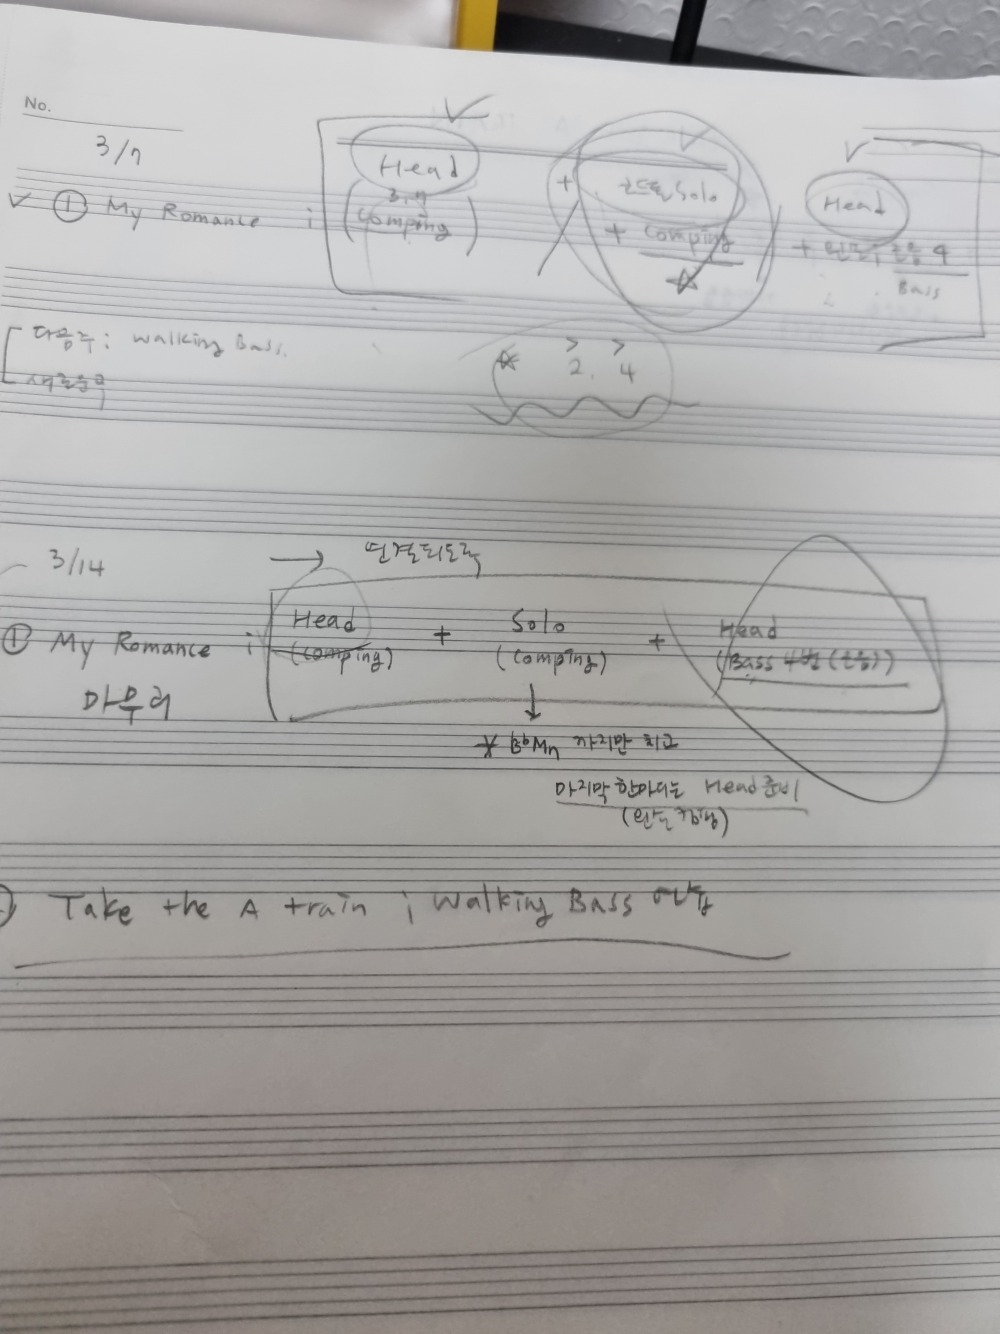 No.
3/7
① My Romance ; Head (3, 7 comping) + 코드톤 Solo + comping Head + 왼손; 근음 4 Bass
다음주 ; walking Bass.
새로운곡
2. 4
3/14
→ 연결되도록
① My Romance ; Head (comping) + Solo (comping) + Head (Bass 4번 (근음))
마무리
까지만 치고
마지막 한마디는 Head 준비
(왼손 컴핑)
Take the A train ; Walking Bass 연습